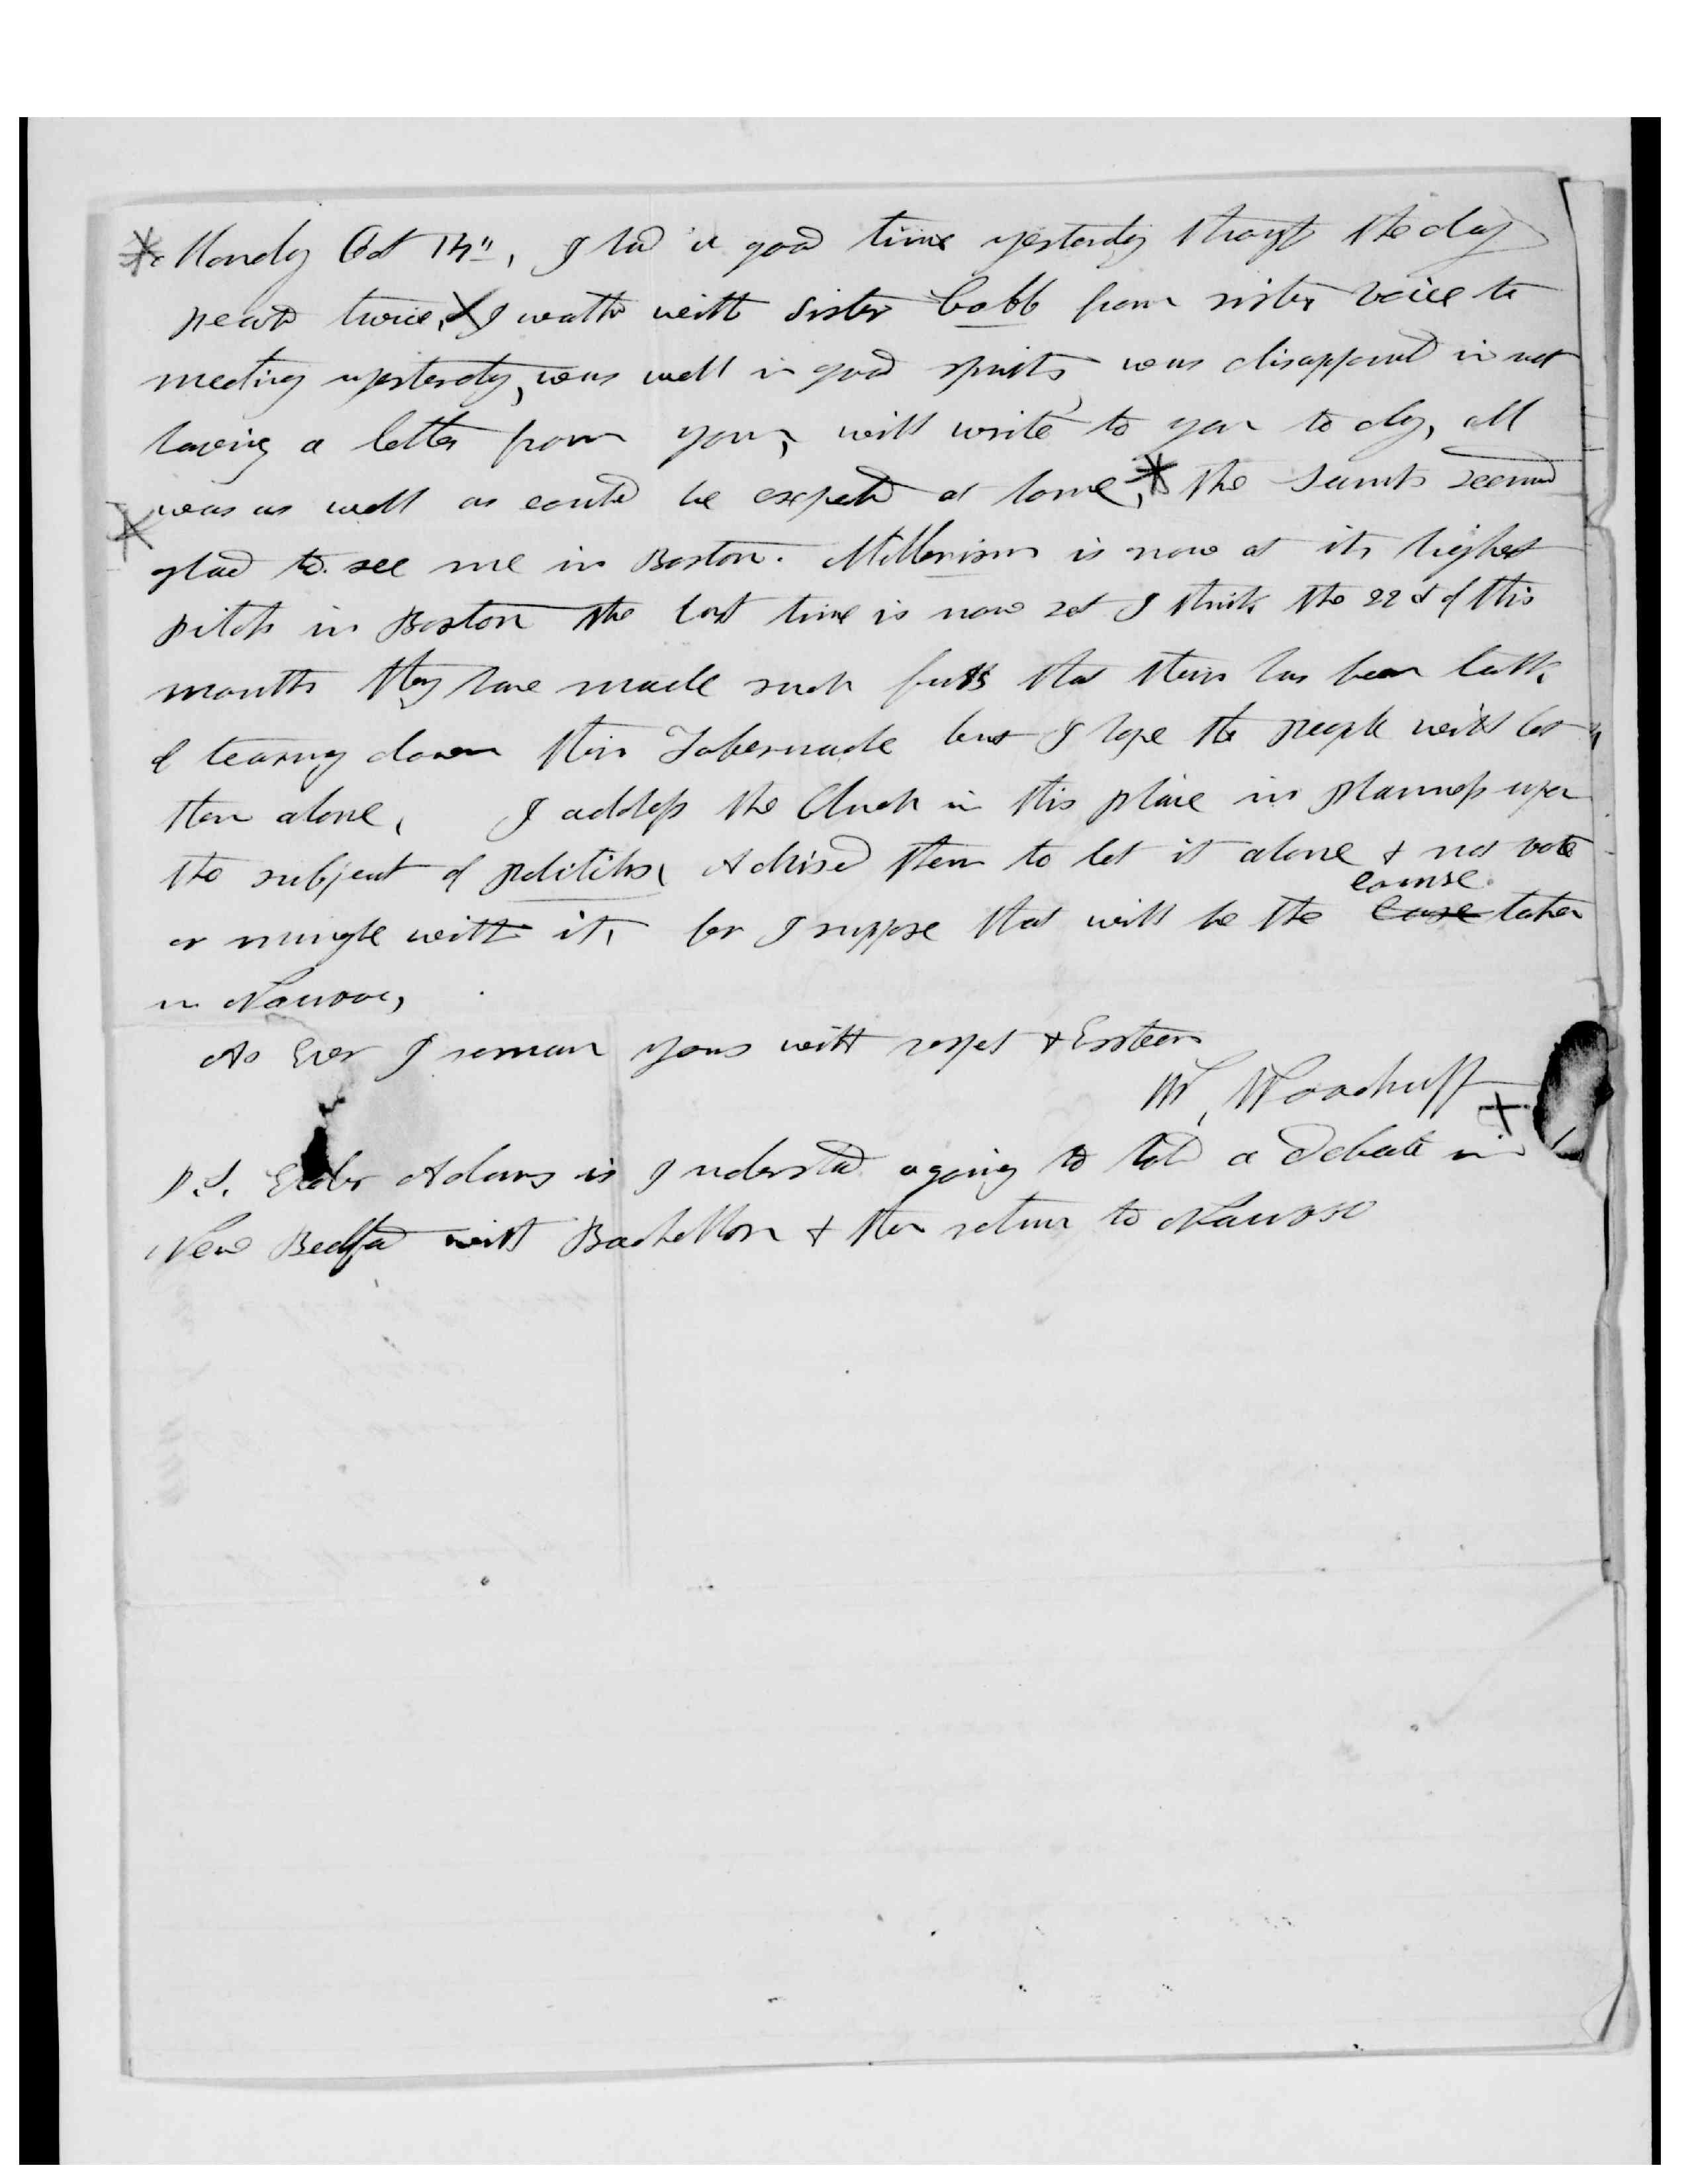 * Monday Oct 14", I had a good time yesterday through the day
preachd twice, X I walkd with Sister Cobb from sister Voice to
meeting yesterday, was well in good spirits, was disappointd in not
having a letter from you, will write to you to day, all
was as well as could be expectd at home, * the Saints seemed
glad to see me in Boston. Millerism is now at its highest
pitch in Boston the last time is now set I think the 22d of this
month they have made such fuss that their has been talk
of tearing down their Tabernacle but I hope the people will let
them alone, I address the Church in this place in plainness upon
the subject of polititks, Advised them to let it alone & not vote
or mingle with it, for I suppose that will be the course taken
in Nauvoo,
As Ever I remain yours with respet & Esteem
W, Woodruff
P.S. Elder Adams is I understad agoing to hold a debate in
New Bedfod with Bachellor & then return to Nauvoo